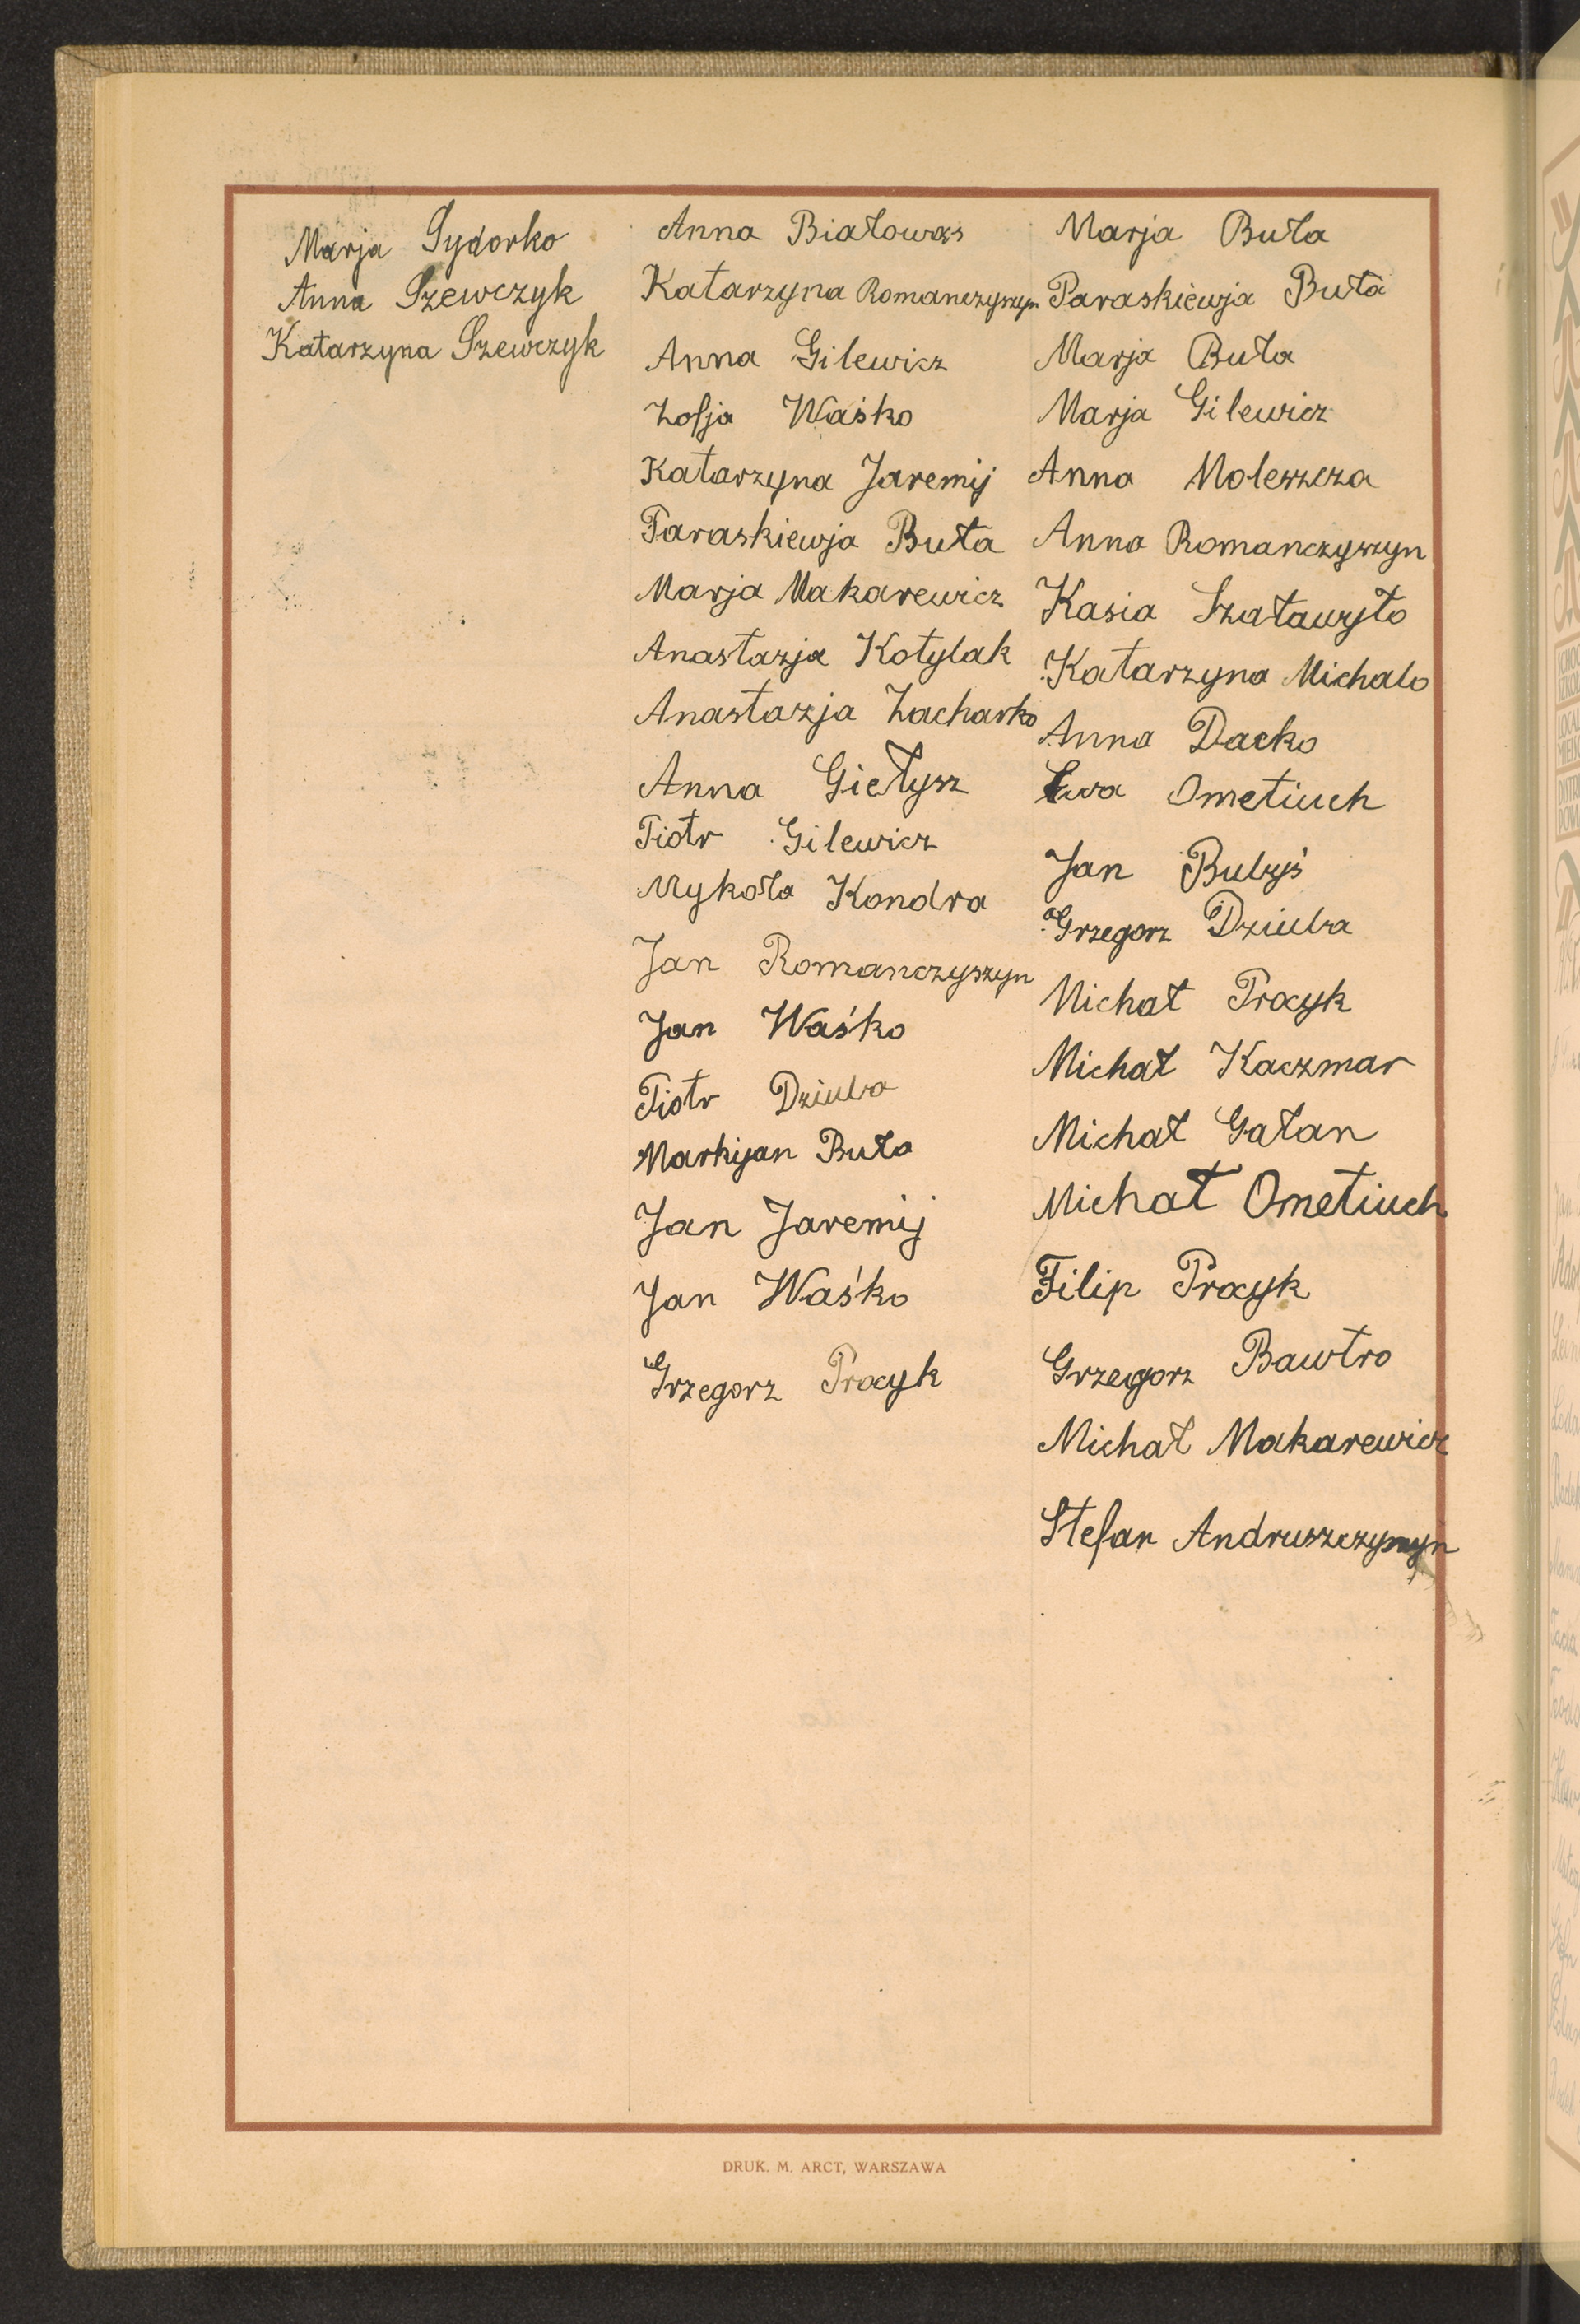 Marja Sydorko
Anna Szewczyk
Katarzyna Szewczyk
Anna Białowąs
Katarzyna Romanczyszyn
Anna Gilewicz
Zofja Waśko
Katarzyna Jaremij
Paraskiewja Buła
Marja Makarewicz
Anastazja Kotylak
Anastazja Zacharko
Anna Giełysz
Piotr Gilewicz
Mykoła Kondra
Jan Romanczyszyn
Jan Waśko
Piotr Dziuba
Markijan Buła
Jan Jaremij
Jan Waśko
Grzegorz Procyk
Marja Buła
Paraskiewja Buła
Marja Buła
Marja Gilewicz
Anna Moleszcza
Anna Romanczyszyn
Kasia Szaławyło
Katarzyna Michalo
Anna Dacko
Ewa Ometiuch
Jan Bubyś
Grzegorz Dziuba
Michał Procyk
Michał Kaczmar
Michał Gałan
Michał Ometiuch
Filip Procyk
Grzegorz Bawtro
Michał Makarewicz
Stefan Andruszczyszyn
DRUK. M. ARCT, WARSZAWA